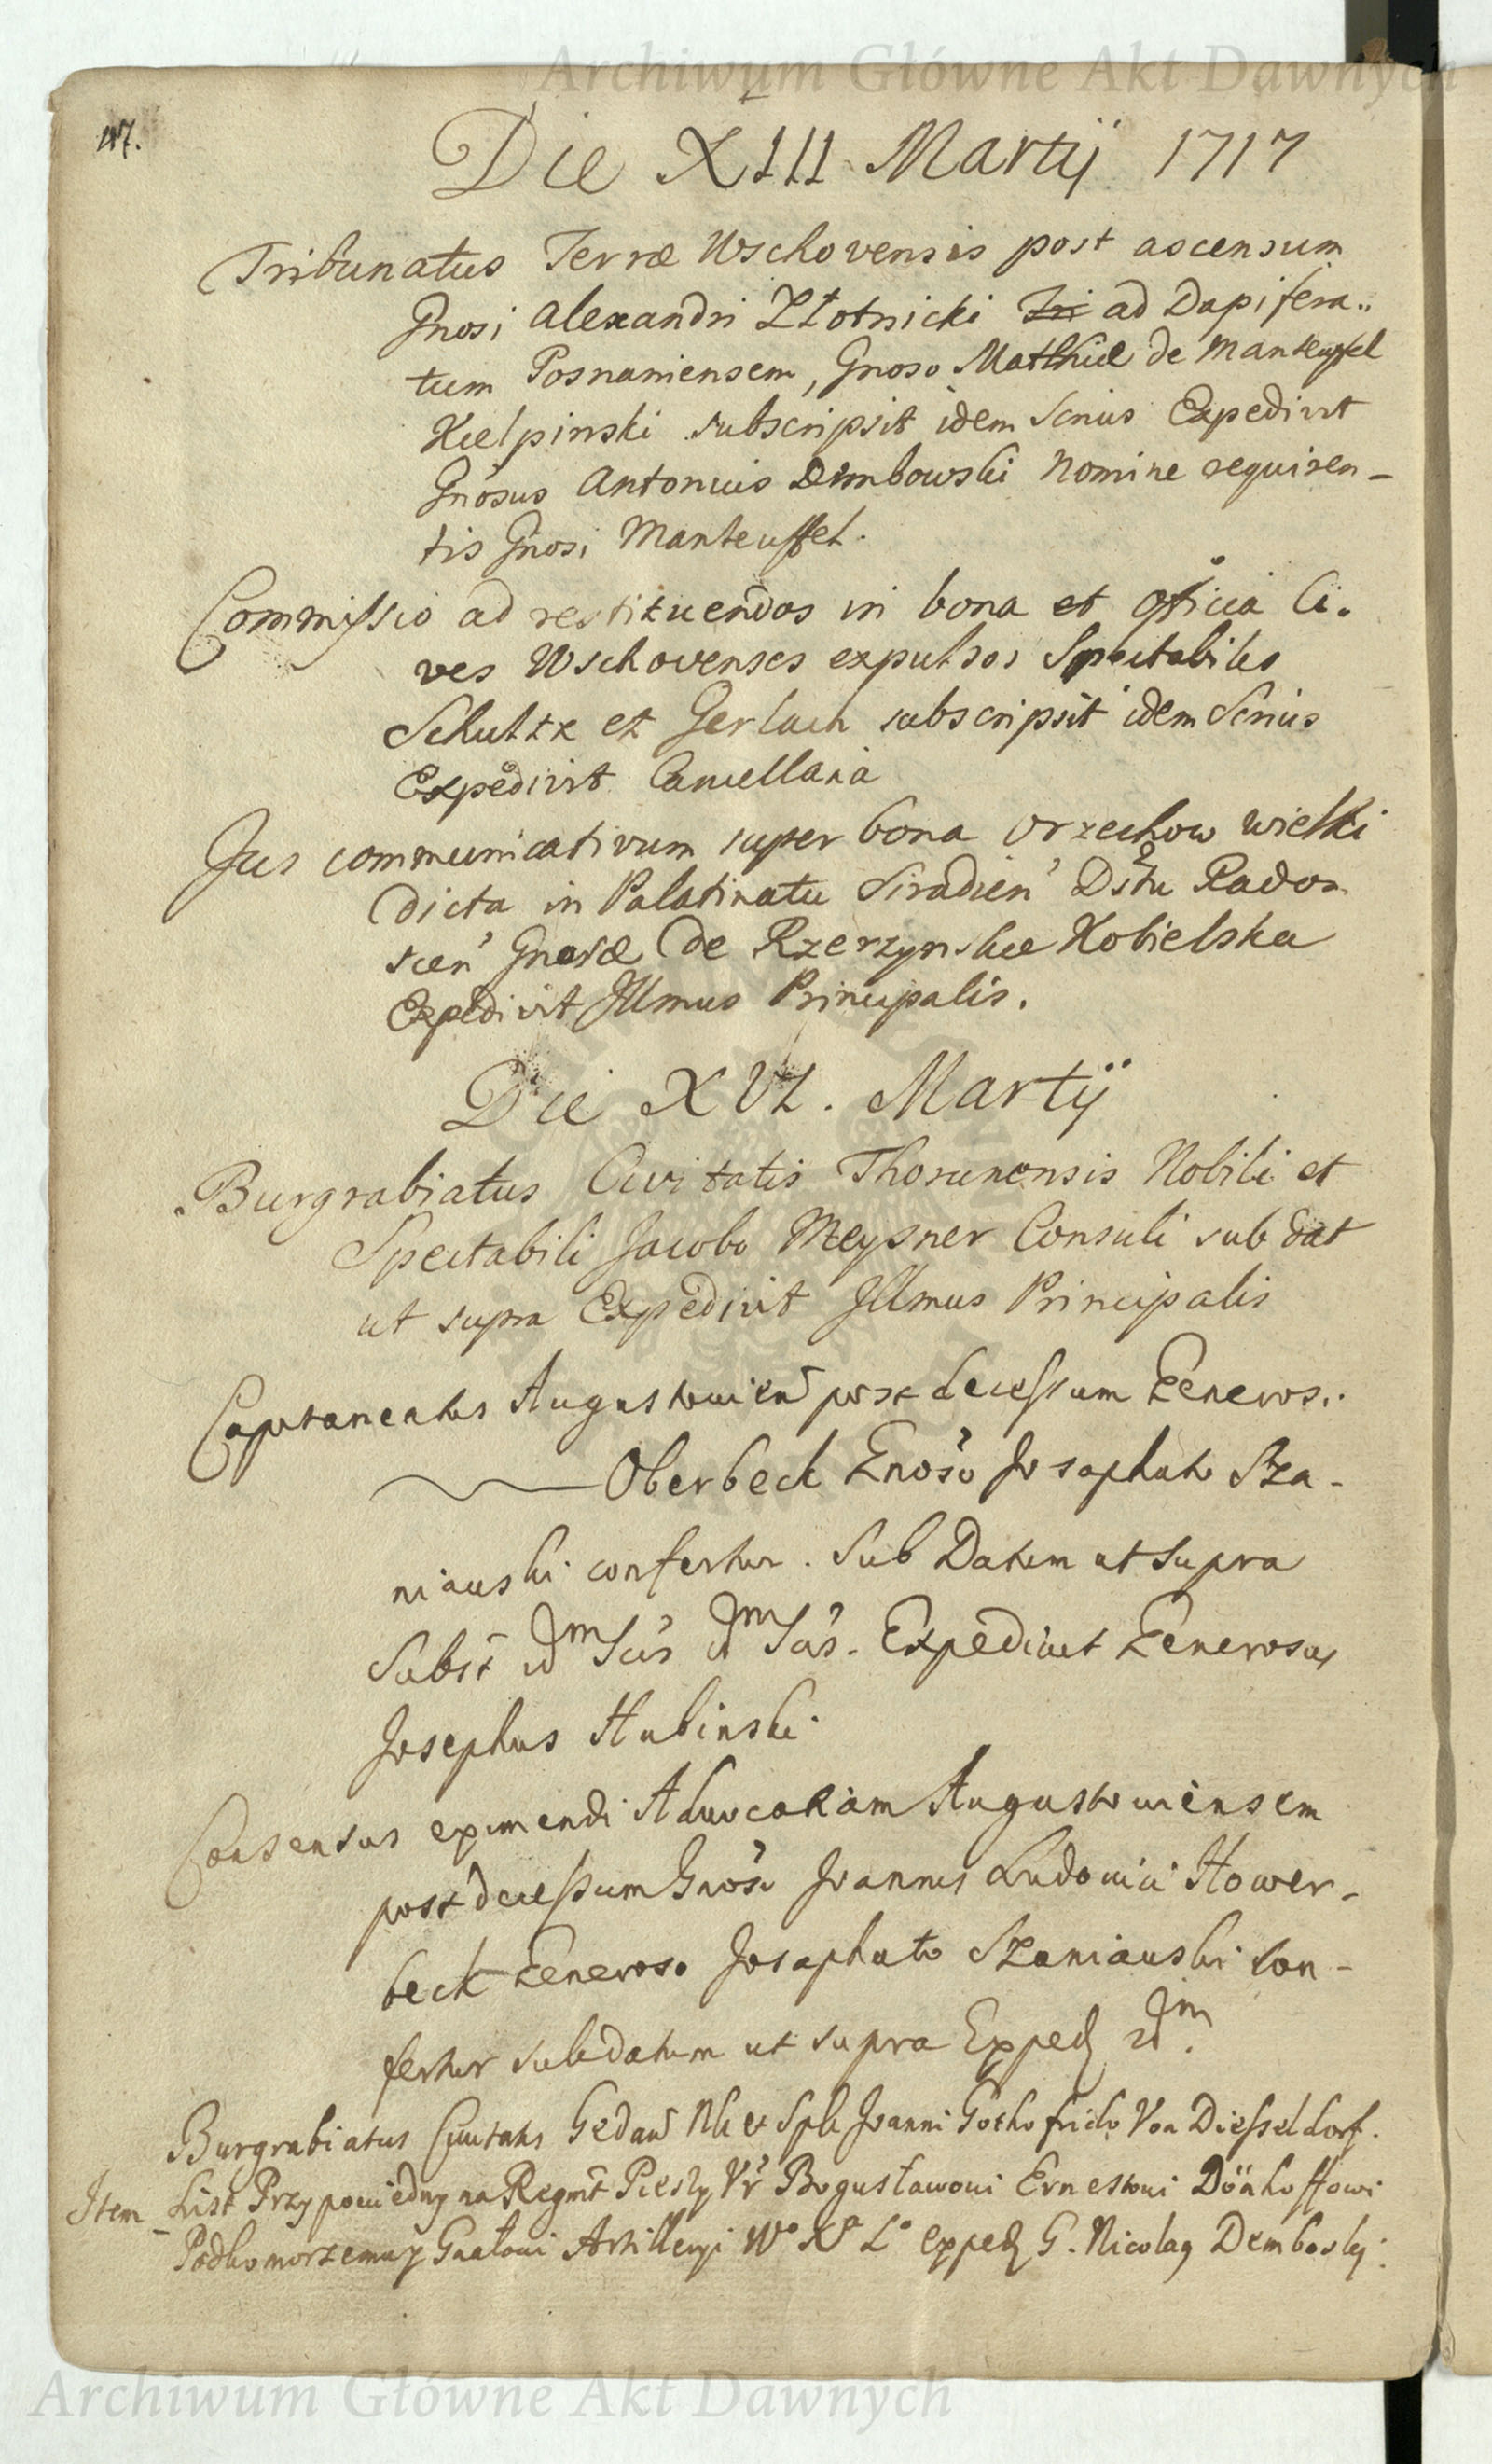 Archiwum Główne Akt Dawnych
47.
Die XIII Martij 1717
Tribunatus Terræ Wschovensis post ascensum
Gnosi Alexandri Złotnicki ad Dapifera..
tum Posnaniensem, Gnoso Mathiæ de Manteuffel
Kielpinski subscripsit idem Scrius Expedivit
Gnosus Antonius Dembowski Nomine requiren-
tis Gnosi Manteuffel.
Commissio ad restituendos in bona et officia Ci.
ves Wschovenses expulsos Spectabiles
Schultz et Gerlach subscripsit idem Scrius
Expedivit Cancellaria
Jus communicativum super bona Orzechow wielki
dicta in Palatinatu Siradien Dstu Rados
scen Gnosæ de Rzerzynskie Kobielska
Expedivit Illmus Principalis.
Die XVI. Martij
Burgrabiatus Civitatis Thorunensis Nobili et
Spectabili Jacobo Meysner Consuli sub dat
ut supra Expedivit Illmus Principalis
Capitaneatus Augustovien post decessum Generos..
Oberbeck Gnoso Josaphato Sza-
niawski confertur. Sub Datum ut supra
Subst idm Scrs idm Sas. Expediuit Generosus
Josephus Hubinski.
Consensus eximendi Advocatiam Augustouiensem
post decessum Gnosi Joannis Ludouici Hower-
beck Generoso Josaphato Szaniauski con-
fertur sub datum ut supra Exped idm.
Burgrabiatus Ciuitatis Gedan Nli et Spli Joanni Gothofrido Von Diesseldorf.
Item List Przypowiedny na Regmt Pieszy Vr Bogusławowi Ernestowi Dönhoffowi
Podkomorzemu y Gnałowi Artilleryi Wo Xa Lo exped G. Nicolag Dembosky.
Archiwum Główne Akt Dawnych